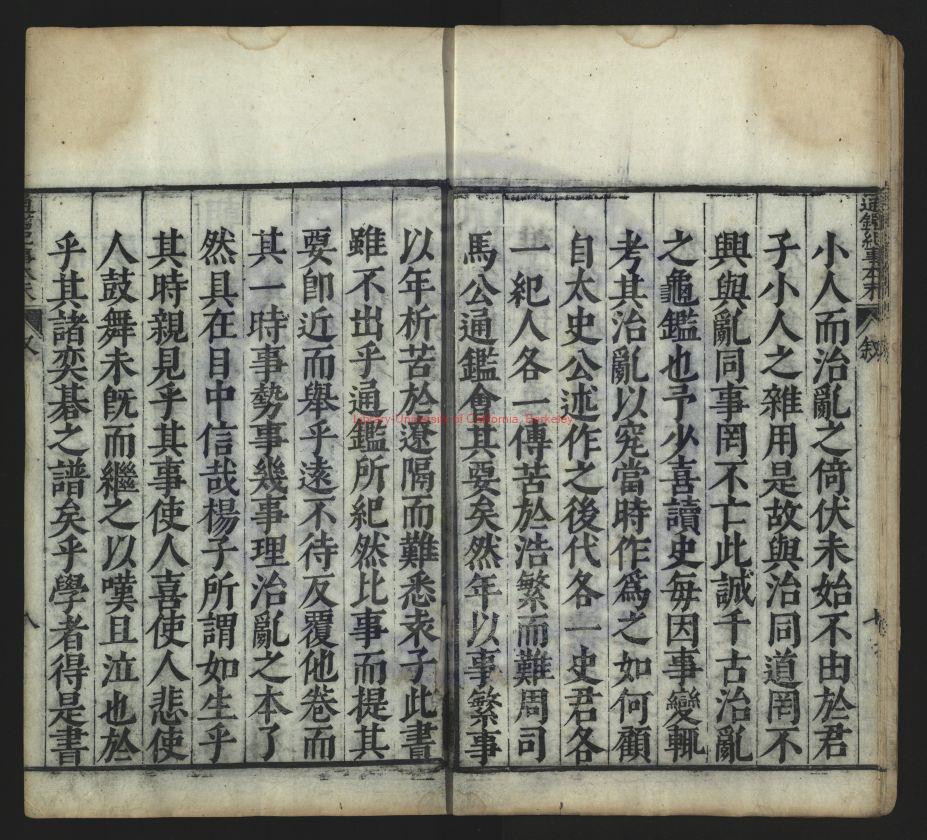 通鑑紀事本末
敘
小人而治亂之倚伏未始不由於君
子小人之雜用是故與治同道罔不
興與亂同事罔不亡此誠千古治亂
之龜鑑也予少喜讀史每因事變輒
考其治亂以究當時作爲之如何顧
自太史公述作之後代各一史君各
一紀人各一傳苦於浩繁而難周司
馬公通鑑會其要矣然年以事繁事
以年析苦於遼隔而難悉袁子此書
雖不出乎通鑑所紀然比事而提其
要卽近而舉乎遠不待反覆他卷而
其一時事勢事幾事理治亂之本了
然具在目中信哉楊子所謂如生乎
其時親見乎其事使人喜使人悲使
人鼓舞未旣而繼之以嘆且泣也於
乎其諸奕碁之譜矣乎學者得是書
八
Library-University of California, Berkeley